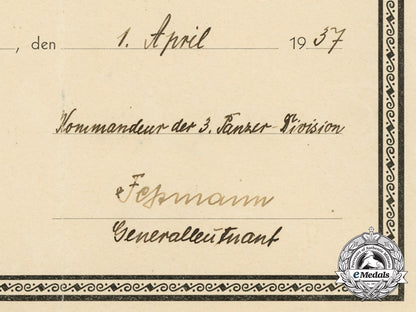 , den 1. April 1937
Kommandeur der 3. Panzer-Division
Feßmann
Generalleutnant
eMedals